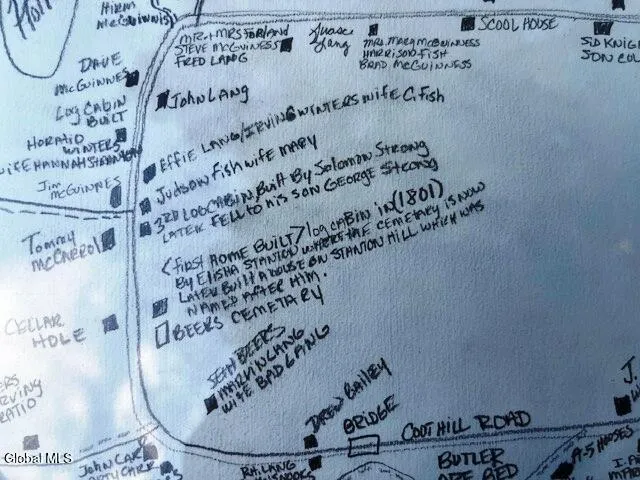 Hiram
McGuinness
MR. + MRS FORLAND
STEVE McGUINESS
FRED LANG
Lang
MRS. MARY McGUINNESS
HARRISON FISH
BRAD McGUINESS
SCOOL HOUSE
SID KNIG
JON COL
DAVE
McGUINNES
LOG CABIN
BUILT
John LANG
HORATIO
WINTERS
WIFE HANNAH
EFFIE LANG/IRVING WINTERS WIFE C. FISH
Jim
McGUINNES
JUDSON FISH WIFE MARY
3RD LOG CABIN Built By Solomon Strong
LATER FELL TO HIS SON GEORGE STRONG
Tommy
McCARROL
<FIRST HOME BUILT> LOG CABIN IN (1801)
BY ELISHA STANTON WHERE THE CEMETARY IS NOW
LATER BUILT A HOUSE ON STANTON HILL WHICH WAS
NAMED AFTER HIM.
BEERS CEMETARY
CELLAR
HOLE
SETH BEERS
MARVIN LANG
WIFE BAD GANG
ERS
RVING
RATIO
DREW BAILEY
BRIDGE
COOT HILL ROAD
J.
JOHN CARR
CARR
R.H. LANG
BUTLER
ORE BED
A-S HOUSES
Global MLS